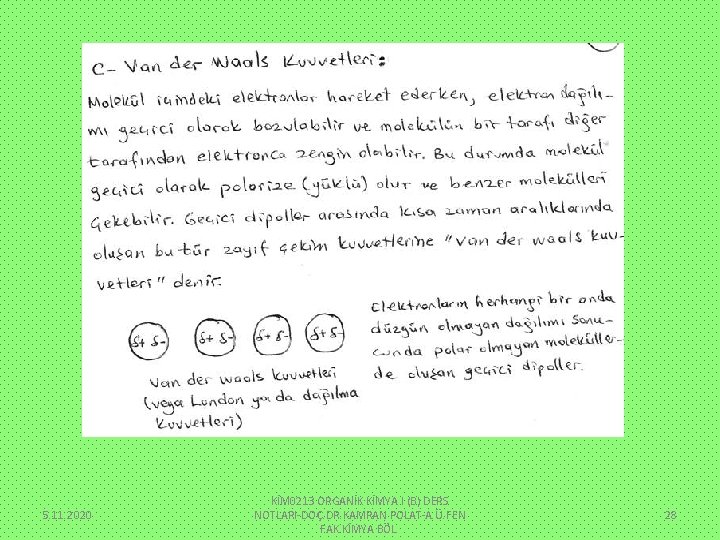 C- Van der Waals Kuvvetleri:
Molekül içindeki elektronlar hareket ederken, elektron dağılı-
mı geçici olarak bozulabilir ve molekülün bir tarafı diğer
tarafından elektronca zengin olabilir. Bu durumda molekül
geçici olarak polarize (yüklü) olur ve benzer molekülleri
çekebilir. Geçici dipoller arasında kısa zaman aralıklarında
oluşan bu tür zayıf çekim kuvvetlerine "Van der Waals kuv-
vetleri" denir.
δ+ δ- δ+ δ- δ+ δ- δ+ δ-
Van der Waals kuvvetleri
(veya London ya da dağılma
kuvvetleri)
Elektronların herhangi bir anda
düzgün olmayan dağılımı sonu-
cunda polar olmayan moleküller-
de oluşan geçici dipoller.
5.11.2020
KİM0213 ORGANİK KİMYA I (B) DERS
NOTLARI-DOÇ.DR.KAMRAN POLAT-A.Ü.FEN
FAK.KİMYA BÖL
28